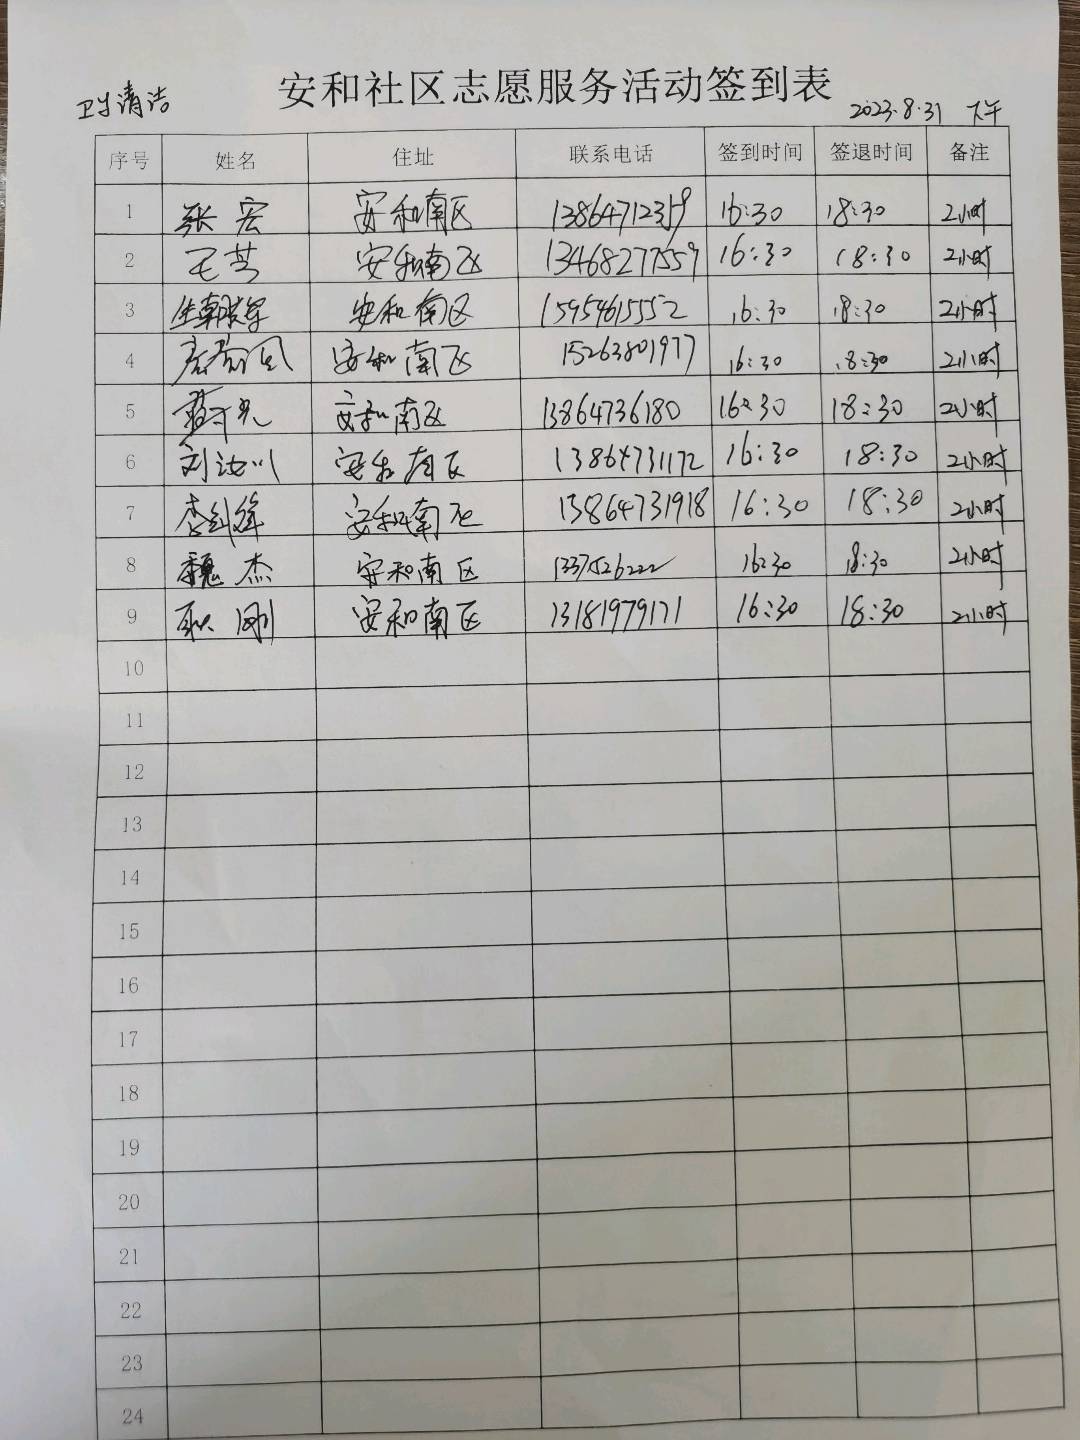 卫生清洁
安和社区志愿服务活动签到表
2023.8.31 下午
序号 姓名 住址 联系电话 签到时间 签退时间 备注
1 张宏 安和南区 13864712359 16:30 18:30 2小时
2 王芳 安和南区 13468277559 16:30 18:30 2小时
3 安和南区 15954615552 16:30 18:30 2小时
4 安和南区 15263801977 16:30 18:30 2小时
5 安和南区 13864736180 16:30 18:30 2小时
6 刘汝川 安和南区 13864731172 16:30 18:30 2小时
7 安和南区 13864731918 16:30 18:30 2小时
8 魏杰 安和南区 16:30 18:30 2小时
9 耿刚 安和南区 13181979171 16:30 18:30 2小时
10
11
12
13
14
15
16
17
18
19
20
21
22
23
24